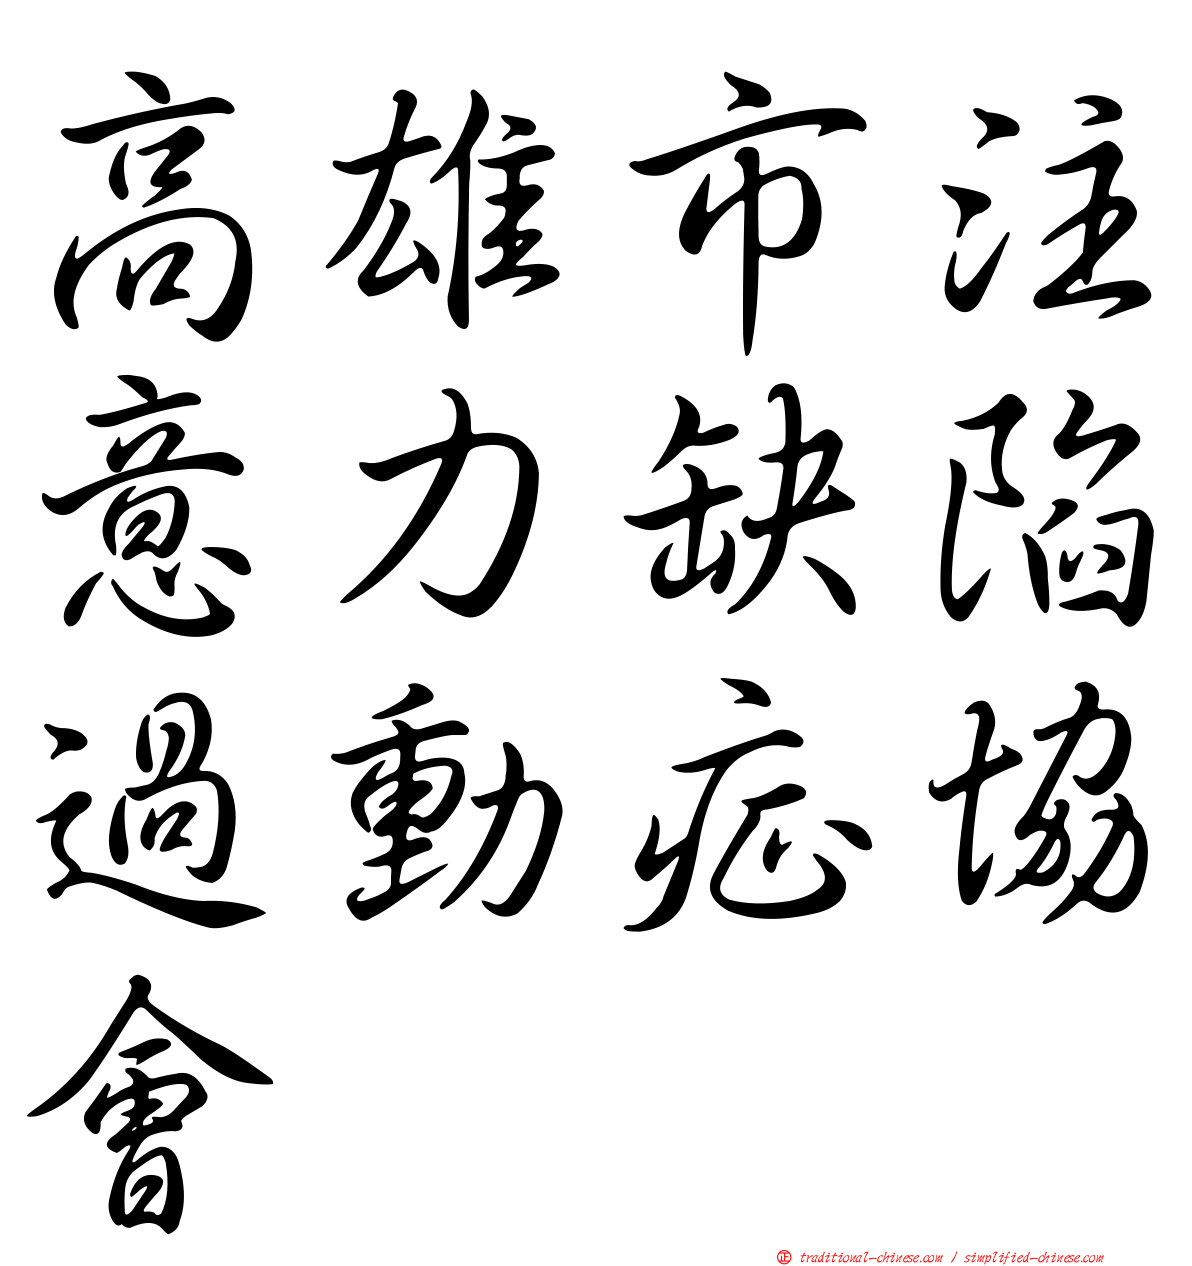 高雄市注
意力缺陷
過動症協
會
㊣ traditional-chinese.com / simplified-chinese.com